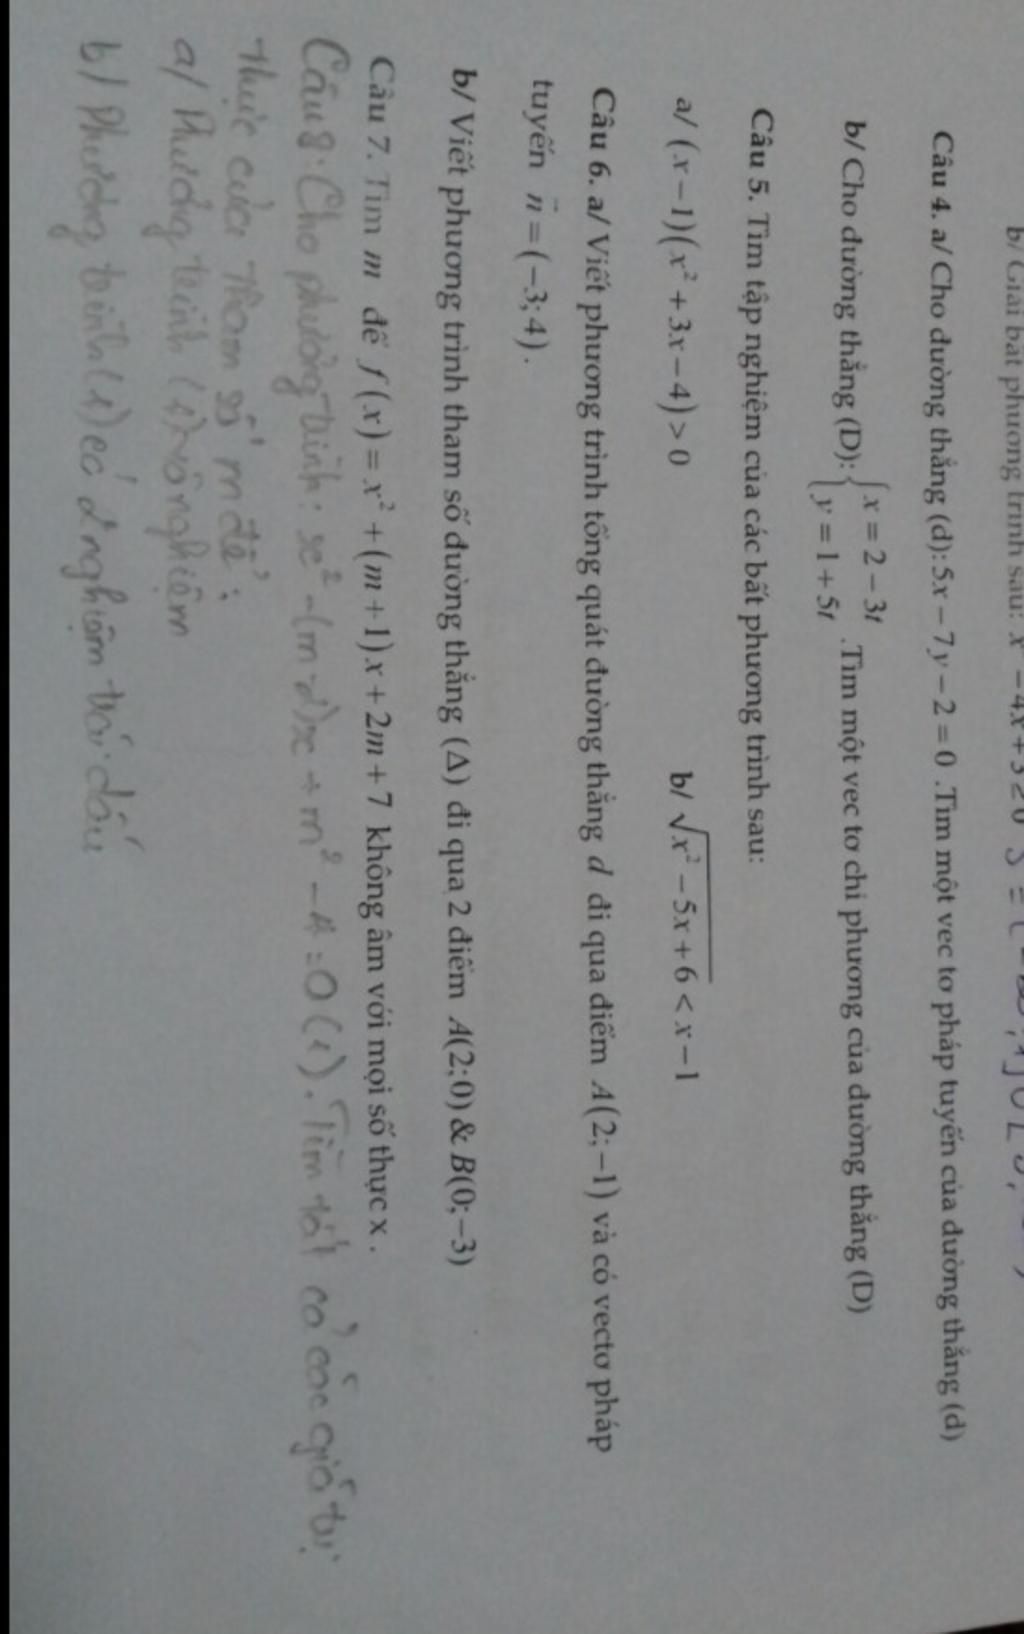 b/ Giải bất phương trình sau: x² - 4x + 3 ≥ 0
Câu 4. a/ Cho đường thẳng (d): 5x - 7y - 2 = 0 .Tìm một vec tơ pháp tuyến của đường thẳng (d)
b/ Cho đường thẳng (D): { x = 2 - 3t y = 1 + 5t .Tìm một vec tơ chỉ phương của đường thẳng (D)
Câu 5. Tìm tập nghiệm của các bất phương trình sau:
a/ (x - 1)(x² + 3x - 4) > 0 b/ √(x² - 5x + 6) < x - 1
Câu 6. a/ Viết phương trình tổng quát đường thẳng d đi qua điểm A(2; -1) và có vectơ pháp
tuyến n⃗ = (-3; 4) .
b/ Viết phương trình tham số đường thẳng (Δ) đi qua 2 điểm A(2;0) & B(0;-3)
Câu 7. Tìm m để f(x) = x² + (m + 1)x + 2m + 7 không âm với mọi số thực x .
Câu 8. Cho phương trình: x² - (m - 2)x + m² - 4 = 0 (1). Tìm tất cả các giá trị
thực của tham số m để:
a/ Phương trình (1) vô nghiệm
b/ Phương trình (1) có 2 nghiệm trái dấu